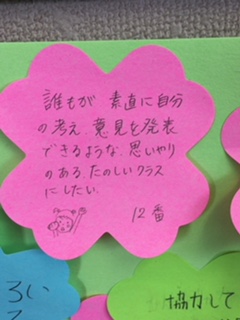 誰もが 素直に自分
の考え、意見を発表
できるような、思いやり
のある、たのしいクラス
にしたい。
12番
ろい
協力して